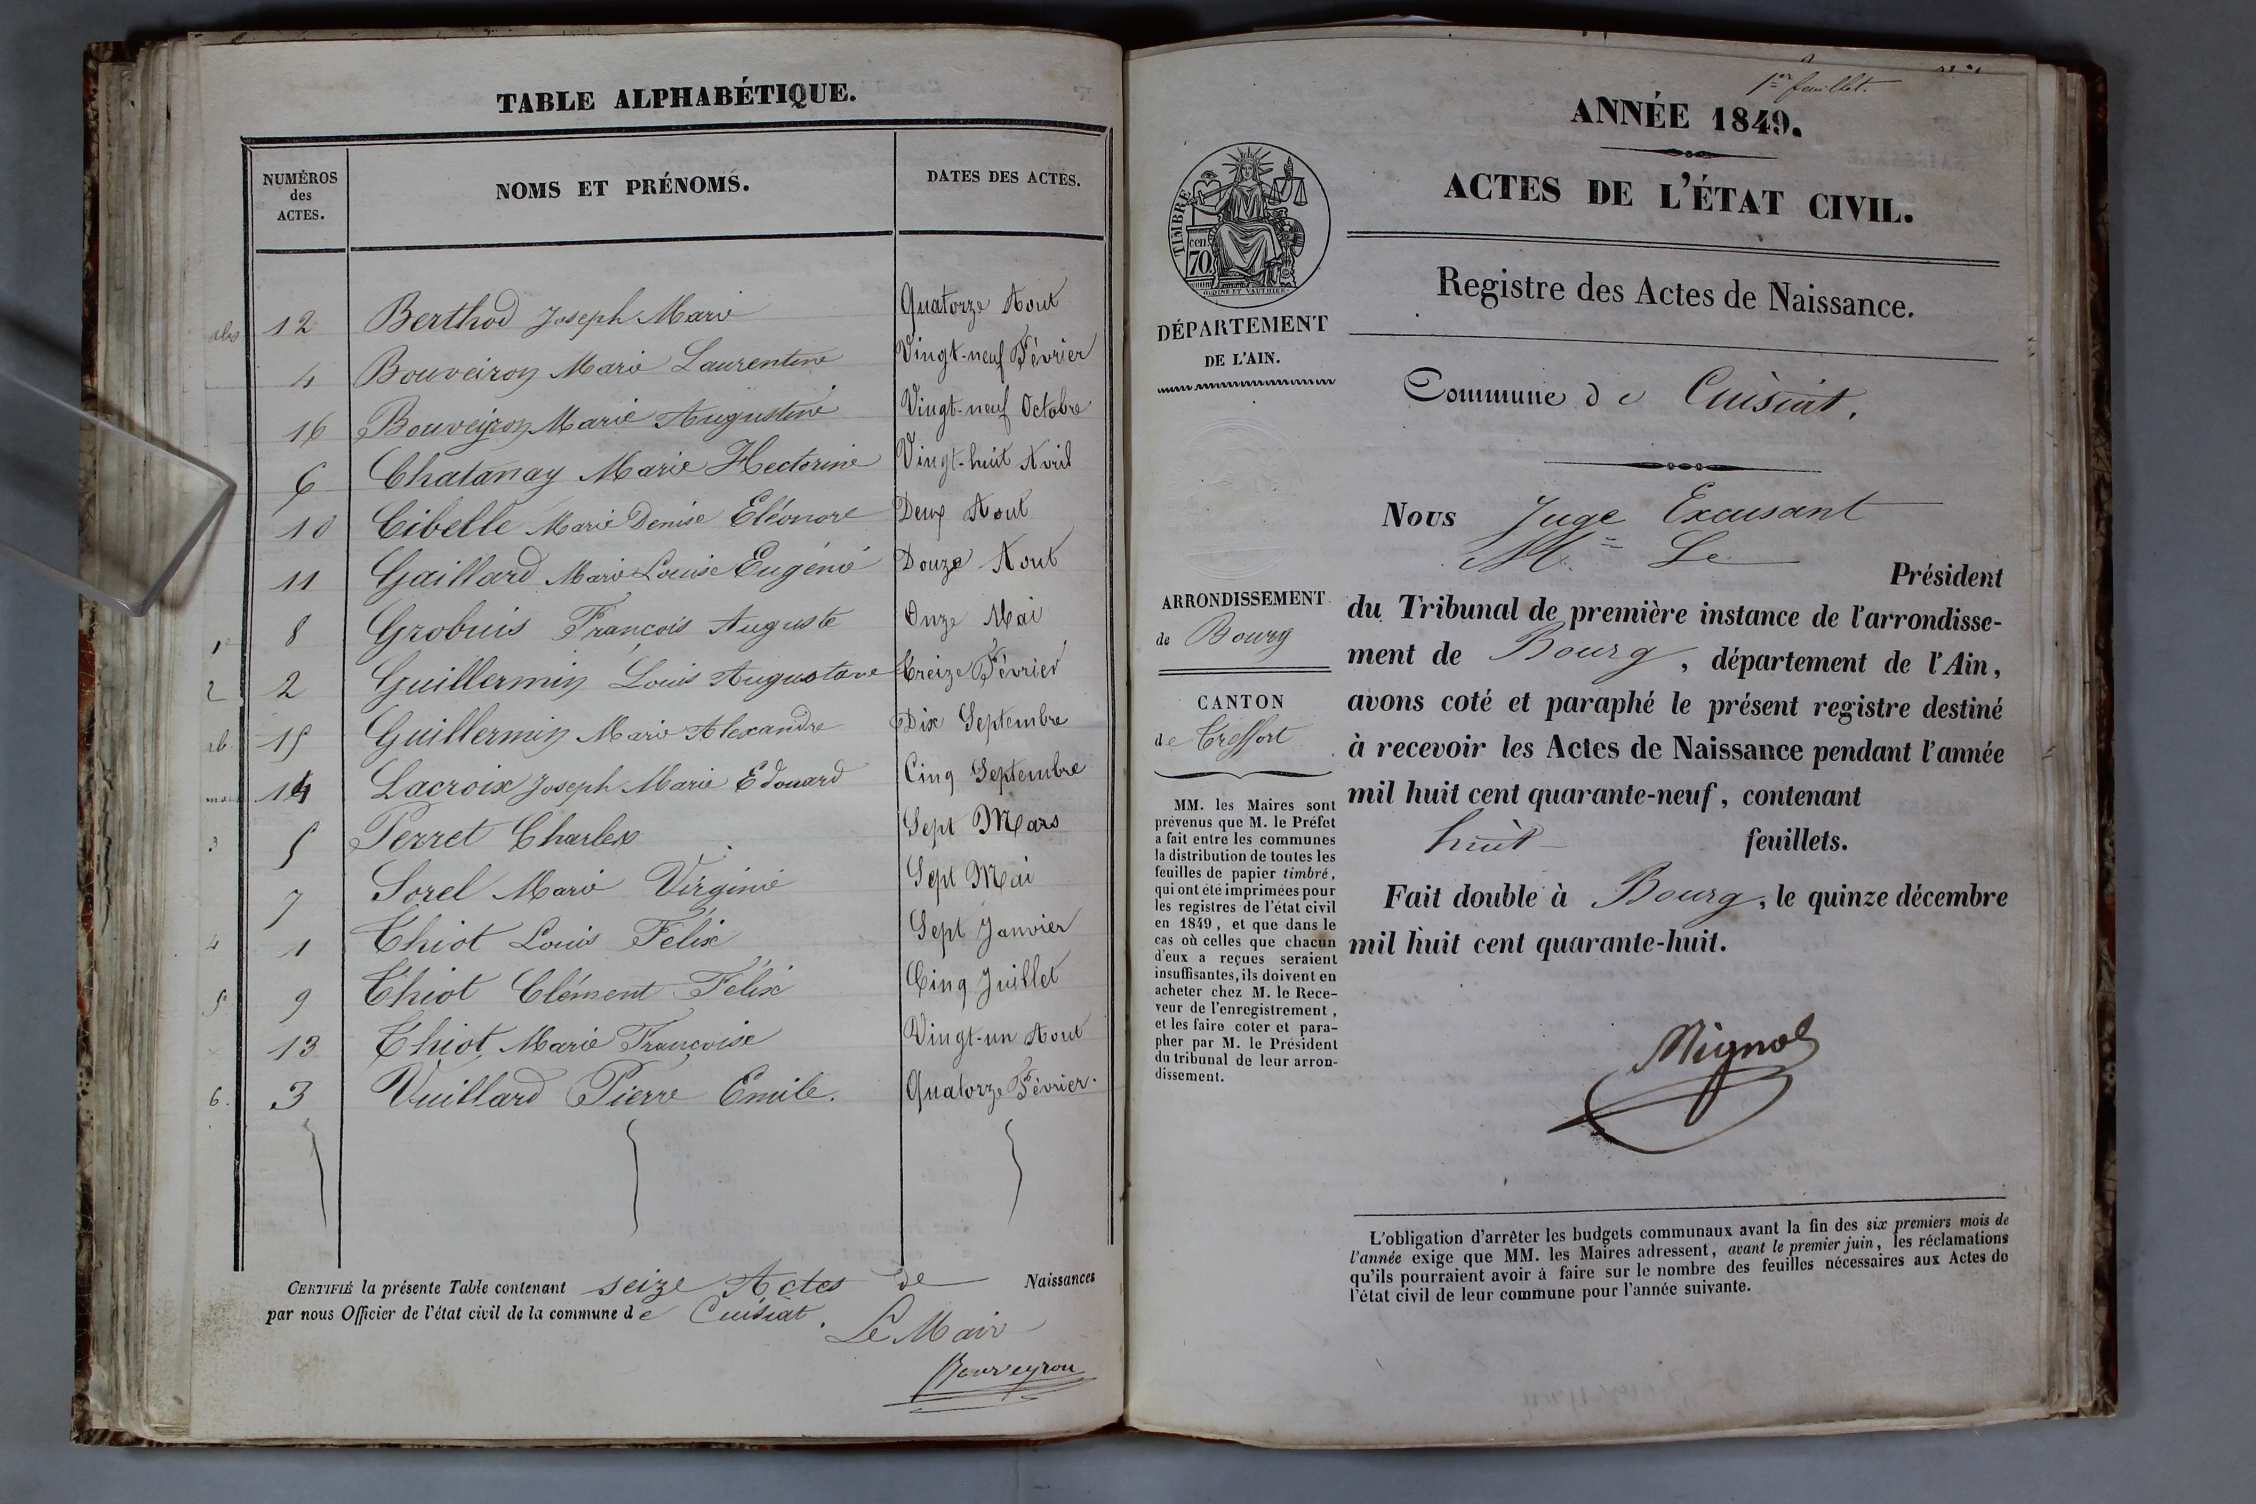 TABLE ALPHABÉTIQUE.
NUMÉROS des ACTES.
NOMS ET PRÉNOMS.
DATES DES ACTES.
12 Berthod Joseph Marie Quatorze Aout
4 Bouveiron Marie Laurentine Vingt-neuf Février
16 Bouveyron Marie Augustine Vingt-neuf Octobre
6 Chatanay Marie Hectorine Vingt-huit Avril
10 Cibelle Marie Denise Eléonore Deux Aout
11 Gaillard Marie Louise Eugénie Douze Aout
8 Grobuis François Auguste Onze Mai
2 2 Guillermin Louis Augustave Treize Février
15 Guillermin Marie Alexandre Dix Septembre
14 Lacroix Joseph Marie Edouard Cinq Septembre
3 5 Perret Charles Sept Mars
7 Sorel Marie Virginie Sept Mai
4 1 Thiot Louis Félix Sept Janvier
5 9 Thiot Clément Félix Cinq Juillet
13 Thiot Marie Françoise Vingt-un Aout
6. 3 Vuillard Pierre Emile. Quatorze Février.
CERTIFIÉ la présente Table contenant seize Actes de Naissances
par nous Officier de l'état civil de la commune de Cuisiat.
Le Maire
Bouveyron
1er feuillet.
ANNÉE 1849.
ACTES DE L'ÉTAT CIVIL.
Registre des Actes de Naissance.
TIMBRE
70 cen
OUDINÉ ET VAUTHIER
DÉPARTEMENT
DE L'AIN.
ARRONDISSEMENT
de Bourg
CANTON
de Treffort
MM. les Maires sont
prévenus que M. le Préfet
a fait entre les communes
la distribution de toutes les
feuilles de papier timbré,
qui ont été imprimées pour
les registres de l'état civil
en 1849, et que dans le
cas où celles que chacun
d'eux a reçues seraient
insuffisantes, ils doivent en
acheter chez M. le Rece-
veur de l'enregistrement,
et les faire coter et para-
pher par M. le Président
du tribunal de leur arron-
dissement.
Commune de Cuisiat.
Nous Juge Excusant
Mr Le Président
du Tribunal de première instance de l'arrondisse-
ment de Bourg, département de l'Ain,
avons coté et paraphé le présent registre destiné
à recevoir les Actes de Naissance pendant l'année
mil huit cent quarante-neuf, contenant
huit feuillets.
Fait double à Bourg, le quinze décembre
mil huit cent quarante-huit.
Mignot
L'obligation d'arrêter les budgets communaux avant la fin des six premiers mois de
l'année exige que MM. les Maires adressent, avant le premier juin, les réclamations
qu'ils pourraient avoir à faire sur le nombre des feuilles nécessaires aux Actes de
l'état civil de leur commune pour l'année suivante.